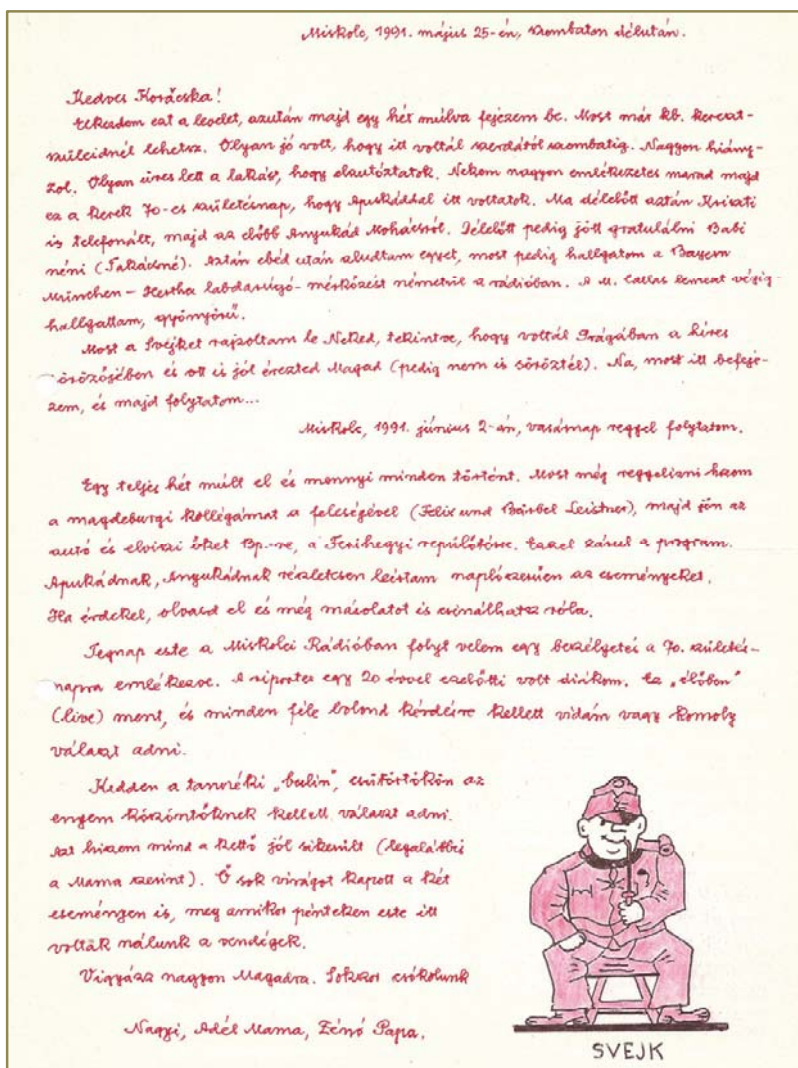 Miskolc, 1991. május 25-én, szombaton délután.
Kedves Kovácska!
Elkezdem ezt a levelet, azután majd egy hét múlva fejezem be. Most már kb. kereszt-
szüleidnél lehetsz. Olyan jó volt, hogy itt voltál szerdától szombatig. Nagyon hiány-
zol. Olyan üres lett a lakás, hogy elautóztatok. Nekem nagyon emlékezetes marad majd
ez a kerek 70-es születésnap, hogy Apukáddal itt voltatok. Ma délelőtt aztán Kriszti
is telefonált, majd az előbb Anyukád Mohácsról. Délelőtt pedig jött gratulálni Babi
néni (Takácsné). Aztán ebéd után aludtam egyet, most pedig hallgatom a Bayern
München – Hertha labdarúgó-mérkőzést németül a rádióban. A M. Callas lemezt végig-
hallgattam, gyönyörű.
Most a Svejket rajzoltam le Neked, tekintve, hogy voltál Prágában a híres
sörözőjében és ott is jól érezted Magad (pedig nem is söröztél). Na, most itt befeje-
zem, és majd folytatom...
Miskolc, 1991. június 2-án, vasárnap reggel folytatom.
Egy teljes hét múlt el és mennyi minden történt. Most még reggelizni hozom
a magdeburgi kollégámat a feleségével (Felix und Bärbel Leistner), majd jön az
autó és elviszi őket Bp-re, a Ferihegyi repülőtérre. Ezzel zárul a program.
Apukádnak, Anyukádnak részletesen leírtam naplószerűen az eseményeket.
Ha érdekel, olvasd el és még másolatot is csinálhatsz róla.
Tegnap este a Miskolci Rádióban folyt velem egy beszélgetés a 70. születés-
napra emlékezve. A riporter egy 20 évvel ezelőtti volt diákom. Ez „élőben"
(live) ment, és minden féle bolond kérdésre kellett vidám vagy komoly
választ adni.
Kedden a tanszéki „bulin", csütörtökön az
engem köszöntőknek kellett választ adni.
Azt hiszem mind a kettő jól sikerült (legalábbis
a Mama szerint). Ő sok virágot kapott a két
eseményen is, meg amikor pénteken este itt
voltak nálunk a vendégek.
Vigyázz nagyon Magadra. Sokszor csókolunk
Nagyi, Adél Mama, Zénó Papa.
SVEJK